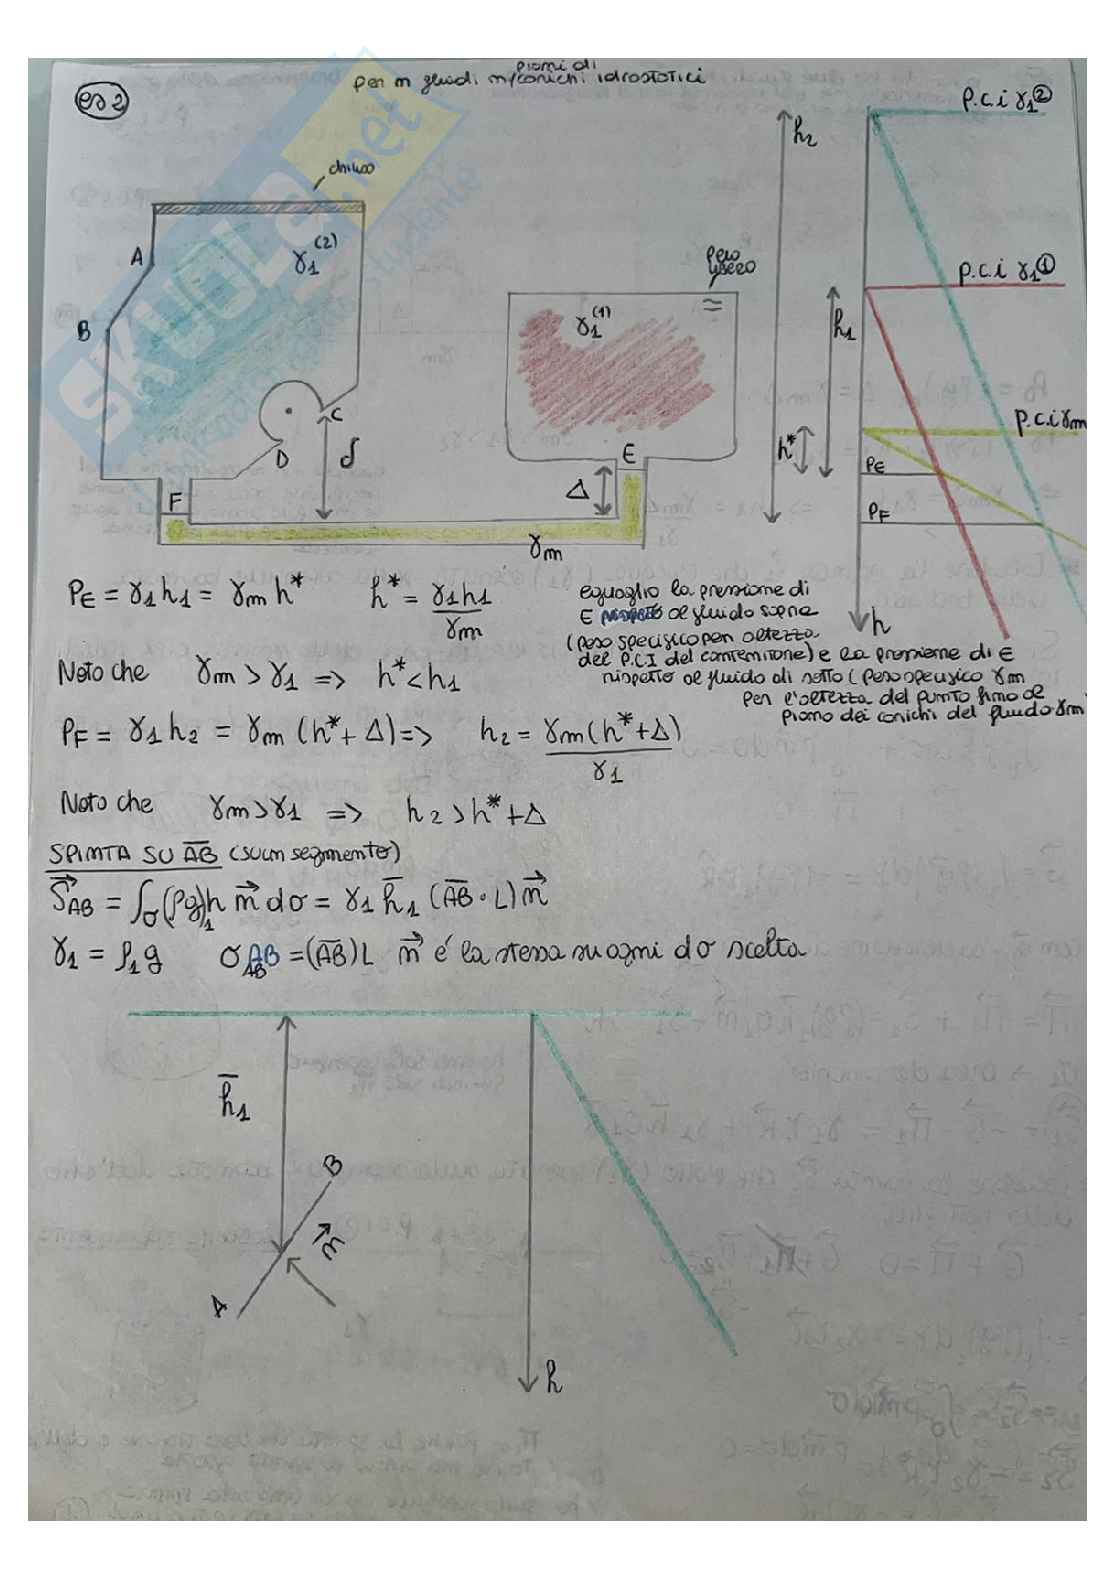 es 2
piani di
per m fluidi m carichi idrostatici
chiuso
A
γ1 (2)
B
C
D
δ
F
pelo libero
γ1 (1)
E
Δ
γm
h2
p.c.i γ1 ②
p.c.i γ1 ①
h1
p.c.i γm
h*
PE
PF
h
PE = γ1 h1 = γm h* h* = γ1h1 / γm
eguaglio la pressione di
E rispetto al fluido sopra
(peso specifico per altezza
del P.C.I del contenitore) e la pressione di E
rispetto al fluido di sotto (peso specifico γm
per l'altezza del punto fino al
piano dei carichi del fluido γm
Noto che γm > γ1 => h* < h1
PF = γ1 h2 = γm (h* + Δ) => h2 = γm (h* + Δ) / γ1
Noto che γm > γ1 => h2 > h* + Δ
SPINTA SU AB (su un segmento)
SAB = ∫σ (ρg)1 h n dσ = γ1 h1 (AB · L) n
γ1 = ρ1 g σAB = (AB) L n é la stessa su ogni dσ scelta
h1
B
n
A
h
SKUOLA.net